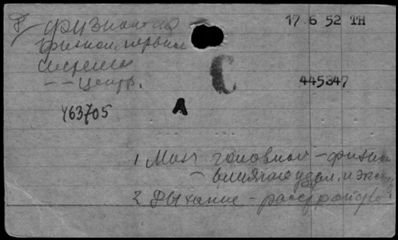 17 6 52 TH
физиол. нервной
системы
-- Центр.
С
445647
463705
А
1 Мозг головной - физиол
- влияние удал. и экст
2 Дыхание - расстройство